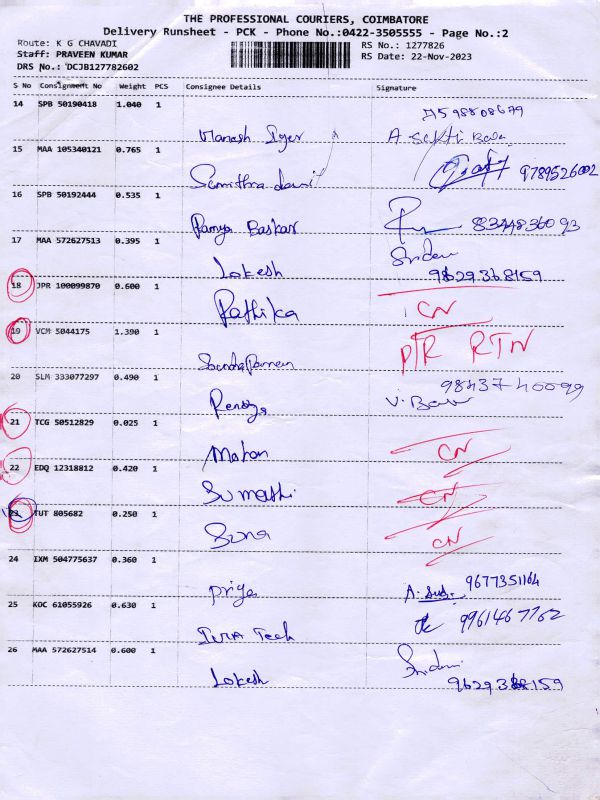 THE PROFESSIONAL COURIERS, COIMBATORE
Delivery Runsheet - PCK - Phone No.:0422-3505555 - Page No.:2
Route: K G CHAVADI
Staff: PRAVEEN KUMAR
DRS No.: DCJB127782602
RS No.: 1277826
RS Date: 22-Nov-2023
S No Consignment No Weight PCS Consignee Details Signature
14 SPB 50190418 1.040 1
Manesh Iyer
15 MAA 105340121 0.765 1
Sumithra devi 9789526002
16 SPB 50192444 0.535 1
Ramya Baskar
17 MAA 572627513 0.395 1
Lokesh 9629368159
18 JPR 100099870 0.600 1
Rathika CN
19 VCM 5044175 1.390 1
RTN
20 SLM 333077297 0.490 1
Renuga
21 TCG 50512829 0.025 1
Mohan CN
22 EDQ 12318812 0.420 1
Sumathi CN
23 TUT 805682 0.250 1
CN
24 IXM 504775637 0.360 1
Priya 9677351164
25 KOC 61055926 0.630 1
Tech 9961467762
26 MAA 572627514 0.600 1
Lokesh